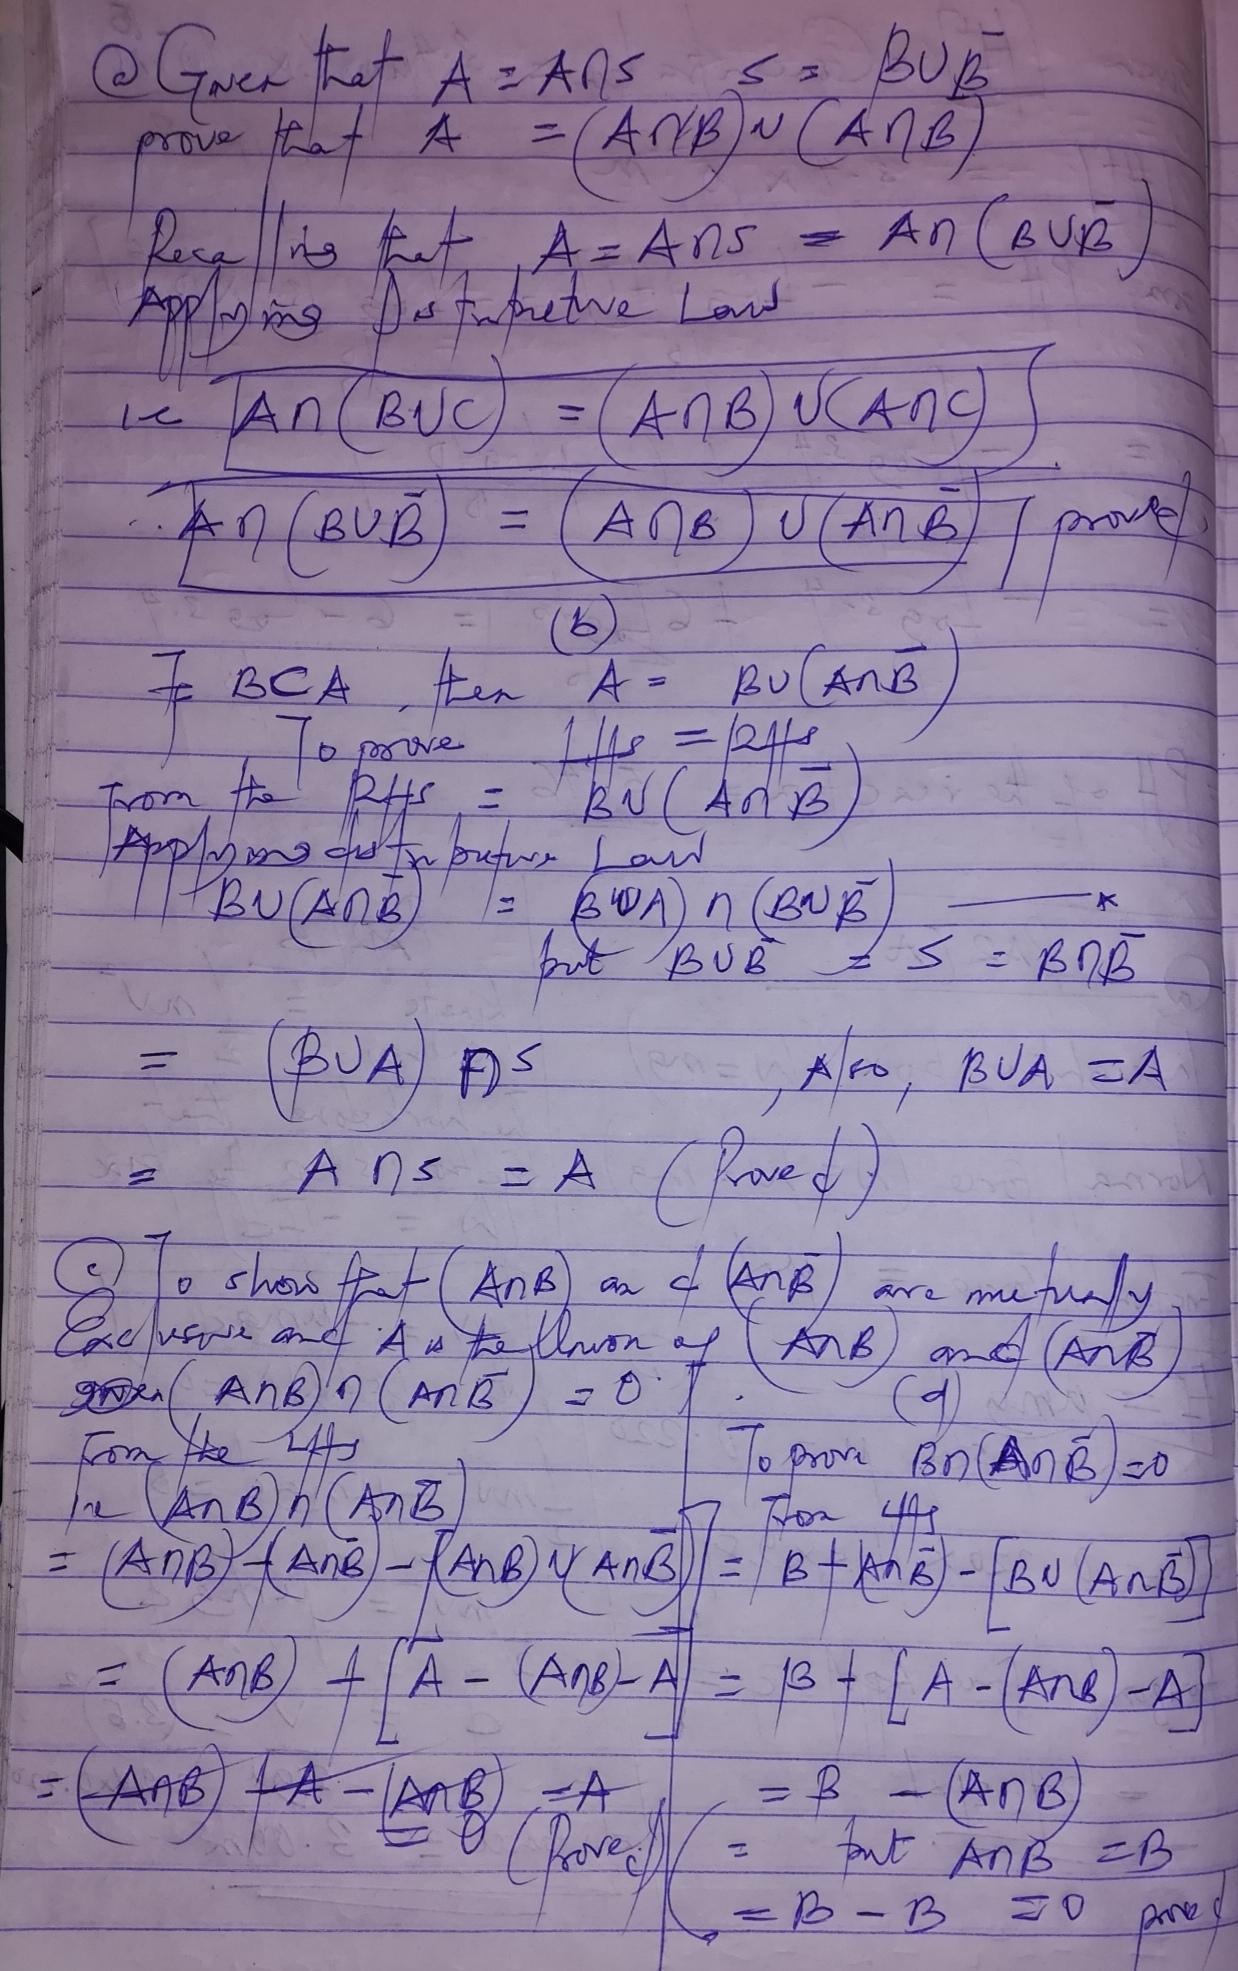 (a) Given that A = A∩S S = B∪B̄
prove that A = (A∩B)∪(A∩B)
Recalling that, A = A∩S = A∩(B∪B̄)
Applying Distributive Law
ie A∩(B∪C) = (A∩B)∪(A∩C)
∴ A∩(B∪B̄) = (A∩B)∪(A∩B̄) proved
(b)
If B⊂A, then A = B∪(A∩B̄)
To prove LHS = RHS
From the RHS = B∪(A∩B̄)
Applying distributive Law
B∪(A∩B̄) = (B∪A)∩(B∪B̄) —— *
but B∪B̄ = S = B∩B̄
= (B∪A)∩S, Also, B∪A = A
= A∩S = A (Proved)
(c) To show that (A∩B) and (A∩B̄) are mutually
Exclusive and A is the Union of (A∩B) and (A∩B̄)
given (A∩B)∩(A∩B̄) = 0
From the LHS
ie (A∩B)∩(A∩B̄)
= (A∩B)+(A∩B̄)-[(A∩B)∪(A∩B̄)]
= (A∩B) + [A - (A∩B)-A]
= (A∩B) + A - (A∩B) - A
= 0 (Proved)
(d)
To prove B∩(A∩B̄)=0
From LHS
= B+(A∩B̄)-[B∪(A∩B̄)]
= B + [A-(A∩B)-A]
= B - (A∩B)
= but A∩B = B
= B - B = 0 proved